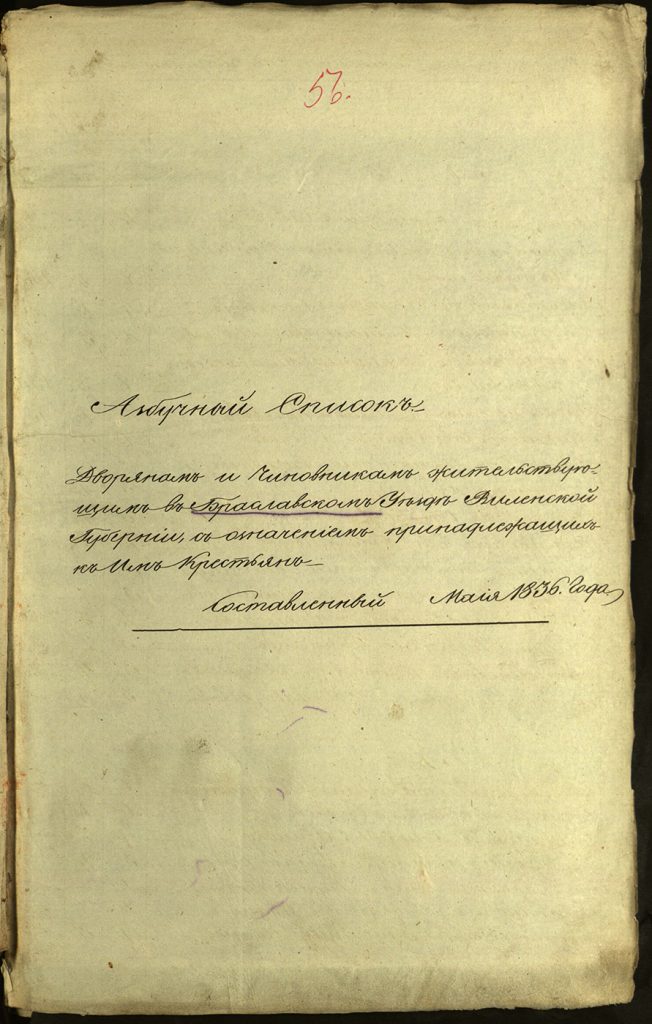 56.
Азбучный Списокъ
Дворянамъ и Чиновникамъ жительствую-
щимъ въ Браславскомъ Уѣздѣ Виленской
Губерніи, съ означеніемъ принадлежащихъ
къ Имъ Крестьянъ
Составленный Маія 1836. Года